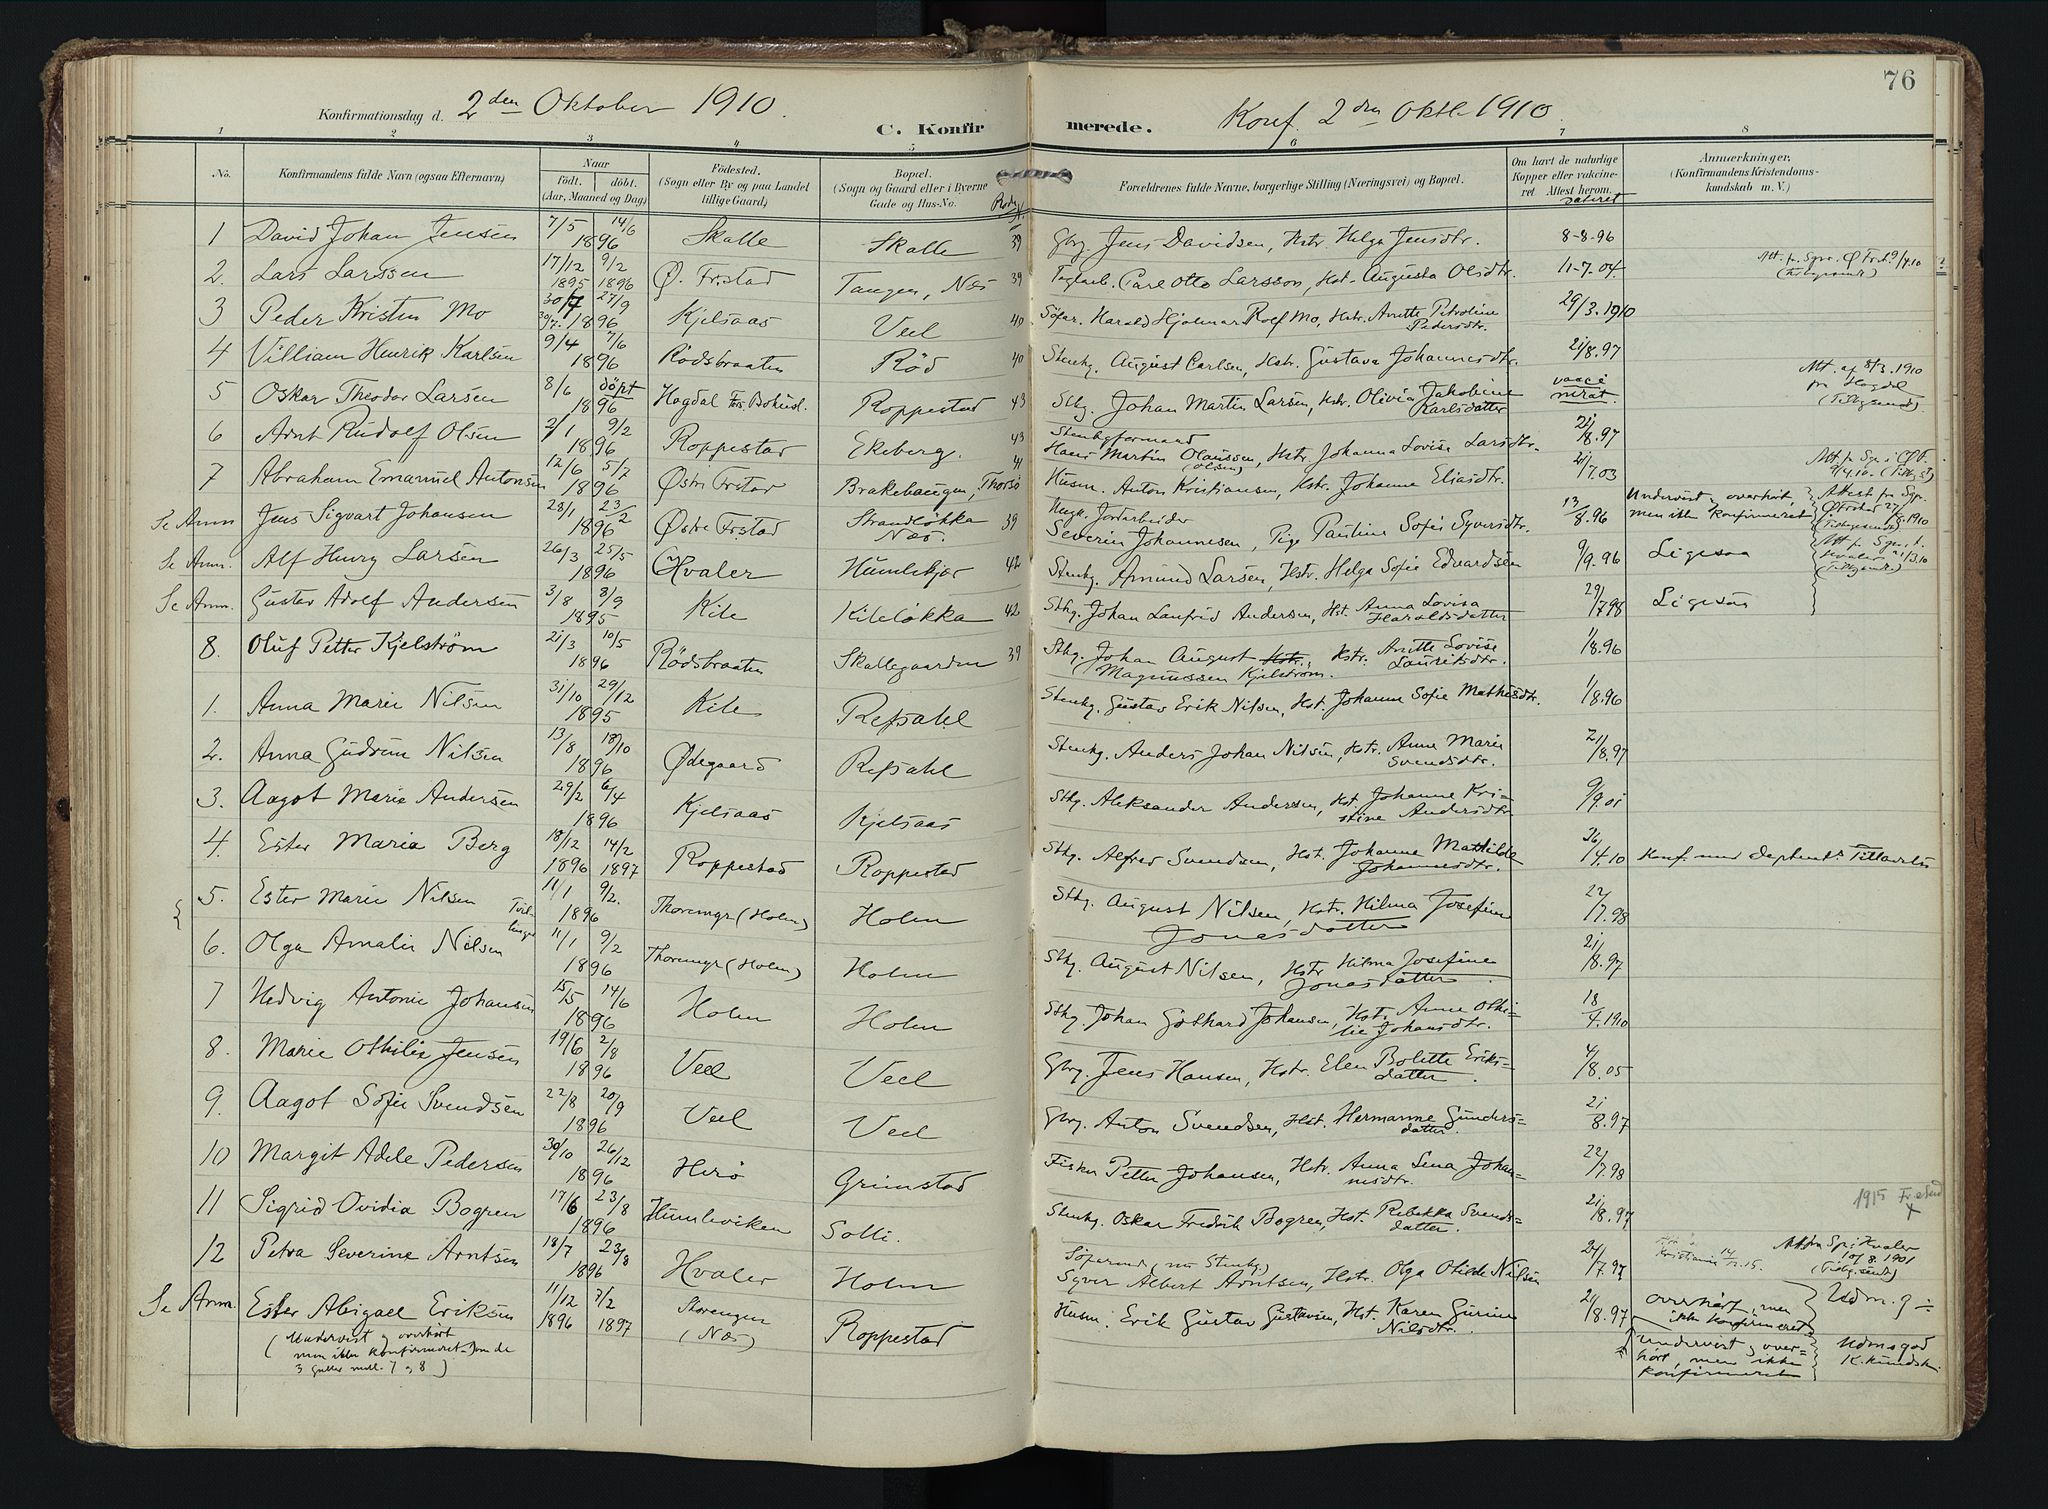 76
Konfirmationsdag d. 2den Oktober 1910.
C. Konfirmerede.
Konf. 2den Oktb. 1910.
1 2 3 4 5 6 7 8
No.
Konfirmandens fulde Navn (ogsaa Efternavn)
Naar
födt. döbt.
(Aar, Maaned og Dag)
Födested.
(Sogn eller By og paa Landet tillige Gaard)
Bopæl.
(Sogn og Gaard eller i Byerne Gade og Hus-No.
Forældrenes fulde Navne, borgerlige Stilling (Næringsvei) og Bopæl.
Om havt de naturlige Kopper eller vaccineret Attest herom.
dateret
Anmærkninger.
(Konfirmandens Kristendomskundskab m. V.)
1 David Johan Jensen 7/5 14/6 1896 Skalle Skalle 39 Gbrg. Jens Davidsen, Hstr. Helga Jensdtr. 8-8-96
2. Lars Larssen 17/12 1895 9/2 1896 Ø. Frstad Tangen, Næs 39 Teglarb. Carl Otto Larsson, Hst. Augusta Olsdtr. 11-7.04
3 Peder Kristen Mo 30/7 27/9 1896 Kjelsaas Veel 40 Söfar. Harald Hjalmar Rolf Mo, Hstr. Anette Petroline Pedersdtr. 29/3.1910
4 Villiam Henrik Karlsen 9/4 7/6 1896 Rødsbraaten Rød 40 Stenhg. August Carlsen, Hstr. Gustava Johannesdtr. 21/8.97
5 Oskar Theodor Larsen 8/6 döpt 1896 Hogdal Bohusl. Roppestad 43 Sthg. Johan Martin Larsen, Hstr. Olivia Jakobine Karlsdatter vaccinerat. Att. af 8/3.1910 fr Hogdal (Tilbgsendt)
6 Arnt Rudolf Olsen 2/1 9/2 1896 Roppestad Ekeberg. 43 Stenhgformand Hans Martin Olaussen (Olsen), Hstr. Johanna Lovise Larsdtr. 21/8.97
7 Abraham Emanuel Antonsen 12/6 5/7 1896 Østre Frstad Brakehaugen, Thorsø 41 Husm. Anton Kristiansen, Hstr. Johanne Eliasdtr. 21/7.03
Se Anm Jens Sigvart Johansen 28/1 23/2 1896 Østre Frstad Strandløkka Næs. 39 Ungk. Jordarbeider Severin Johannesen, Pige Pauline Sofie Syversdtr. 13/8.96 Undervist og overhørt, men ikke konfirmeret
Se Anm. Alf Henry Larsen 26/3 25/5 1896 Hvaler Humlekjær 42 Stenhg. Amund Larsen, Hstr. Helga Sofie Edvardsen 9/9.96 Ligesaa
Se Anm. Gustav Adolf Andersen 3/8 8/9 1895 Kile Kileløkka 42 Sthg. Johan Lanfrid Andersen, Hst. Anna Lovisa Haraldsdatter 29/7.98 Ligesaa
8. Oluf Petter Kjelström 21/3 10/5 1896 Rødsbraaten Skallegaarden 39 Sthg. Johan August Magnussen Kjelström. Hstr. Anette Lovise Lauritsdtr. 1/8.96
1. Anna Marie Nilsen 31/10 29/12 1895 Kile Refsahl Stenhg. Gustav Erik Nilsen, Hst. Johanne Sofie Mathisdtr. 1/8.96
2. Anna Gudrun Nilsen 13/8 18/10 1896 Ødegaard Refsahl Stenhg. Anders Johan Nilsen, Hstr. Anne Marie Svendsdtr. 21/8.97
3. Aagot Marie Andersen 29/2 6/4 1896 Kjelsaas Kjelsaas Sthg. Aleksander Andersen, Hst. Johanne Kristine Andersdtr. 9/9.01
4. Ester Maria Berg 18/12 1896 14/2 1897 Roppestad Roppestad Sthg. Alfred Svendsen, Hst. Johanne Mathilde Johannesdtr. 26/4.10 Konf. med Deptements Tilladelse
5. Ester Marie Nilsen Tvillinger 11/1 9/2. 1896 Thoremyr (Holm) Holm Sthg. August Nilsen, Hstr. Hilma Josefine Jonasdatter 22/7.98
6. Olga Amalie Nilsen 11/1 9/2 1896 Thoremyr (Holm) Holm Sthg. August Nilsen, Hstr Hilma Josefine Jonasdatter. 21/8.97
7 Hedvig Antonie Johansen 15/5 14/6 1896 Holm Holm Sthg Johan Gothard Johansen, Hst. Anne Othilie Johansdtr. 18/4.1910
8. Marie Othilie Jensen 19/6 2/8 1896 Veel Veel Gbrg. Jens Hansen, Hstr. Elen Bolette Eriksdatter. 4/8.05
9. Aagot Sofie Svendsen 22/8 20/9 1896 Veel Veel Gbrg. Anton Svendsen, Hst. Hermanne Gundersdatter. 21/8.97
10 Margit Adele Pedersen 30/10 26/12 1896 Herø Grimstad Fisker Petter Johansen, Hstr. Anna Lena Johannesdtr. 22/7.98
11 Sigrid Ovidia Bogren 17/6 23/8 1896 Humleviken Solli. Stenhg. Oskar Fredrik Bogren, Hst. Rebekka Svendsdatter. 21/8.97 1915
12 Petra Severine Arntsen 18/7 23/8 1896 Hvaler Holm Söfarend (nu Stenhg.) Syver Albert Arntsen, Hstr. Olga Otilde Nilsen 24/7.97
Se Anm. Ester Abigael Eriksen 11/12 1896 7/2 1897 Storengen (Næs) Roppestad Husm. Erik Gustav Gustavsen, Hst. Karen Gurine Nilsdtr. 21/8.97 overhørt, men ikke konfirmeret
(Undervist og overhørt men ikke konfirmeret som de 3 gutter mell. 7 og 8)
undervist og overhørt, men ikke konfirmeret
Udmgod K.kundsk.